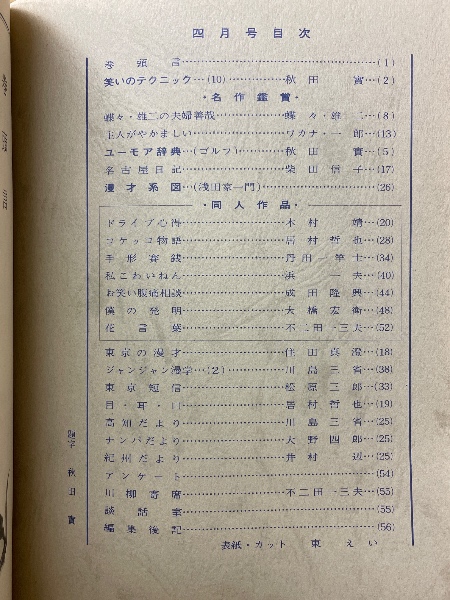 四月号目次
巻頭言…(1)
笑いのテクニック…(10)…秋田實…(2)
・名作鑑賞・
蝶々・雄二の夫婦善哉…蝶々・雄二…(8)
主人がやかましい…ワカナ・一郎…(13)
ユーモア辞典…(ゴルフ)…秋田實…(5)
名古屋日記…柴田信子…(17)
漫才系図…(浅田家一門)…(26)
・同人作品・
ドライブ心得…木村靖…(20)
コケッコ物語…居村哲也…(28)
手形賽銭…丹田一筆士…(34)
私こわいねん…浜一夫…(40)
お笑い腹痛相談…成田隆興…(44)
僕の発明…大橋宏衛…(48)
花言葉…不二田一三夫…(52)
東京の漫才…住田真澄…(18)
ジャンジャン漫学…(2)…川島三省…(38)
東京短信…松原三郎…(33)
目・耳・口…居村哲也…(19)
高知だより…川島三省…(25)
ナンバだより…大野四郎…(25)
紀州だより…井村辺…(25)
アンケート…(54)
川柳寄席…不二田一三夫…(55)
談話室…(55)
編集後記…(56)
表紙・カット 東えい
題字 秋田實